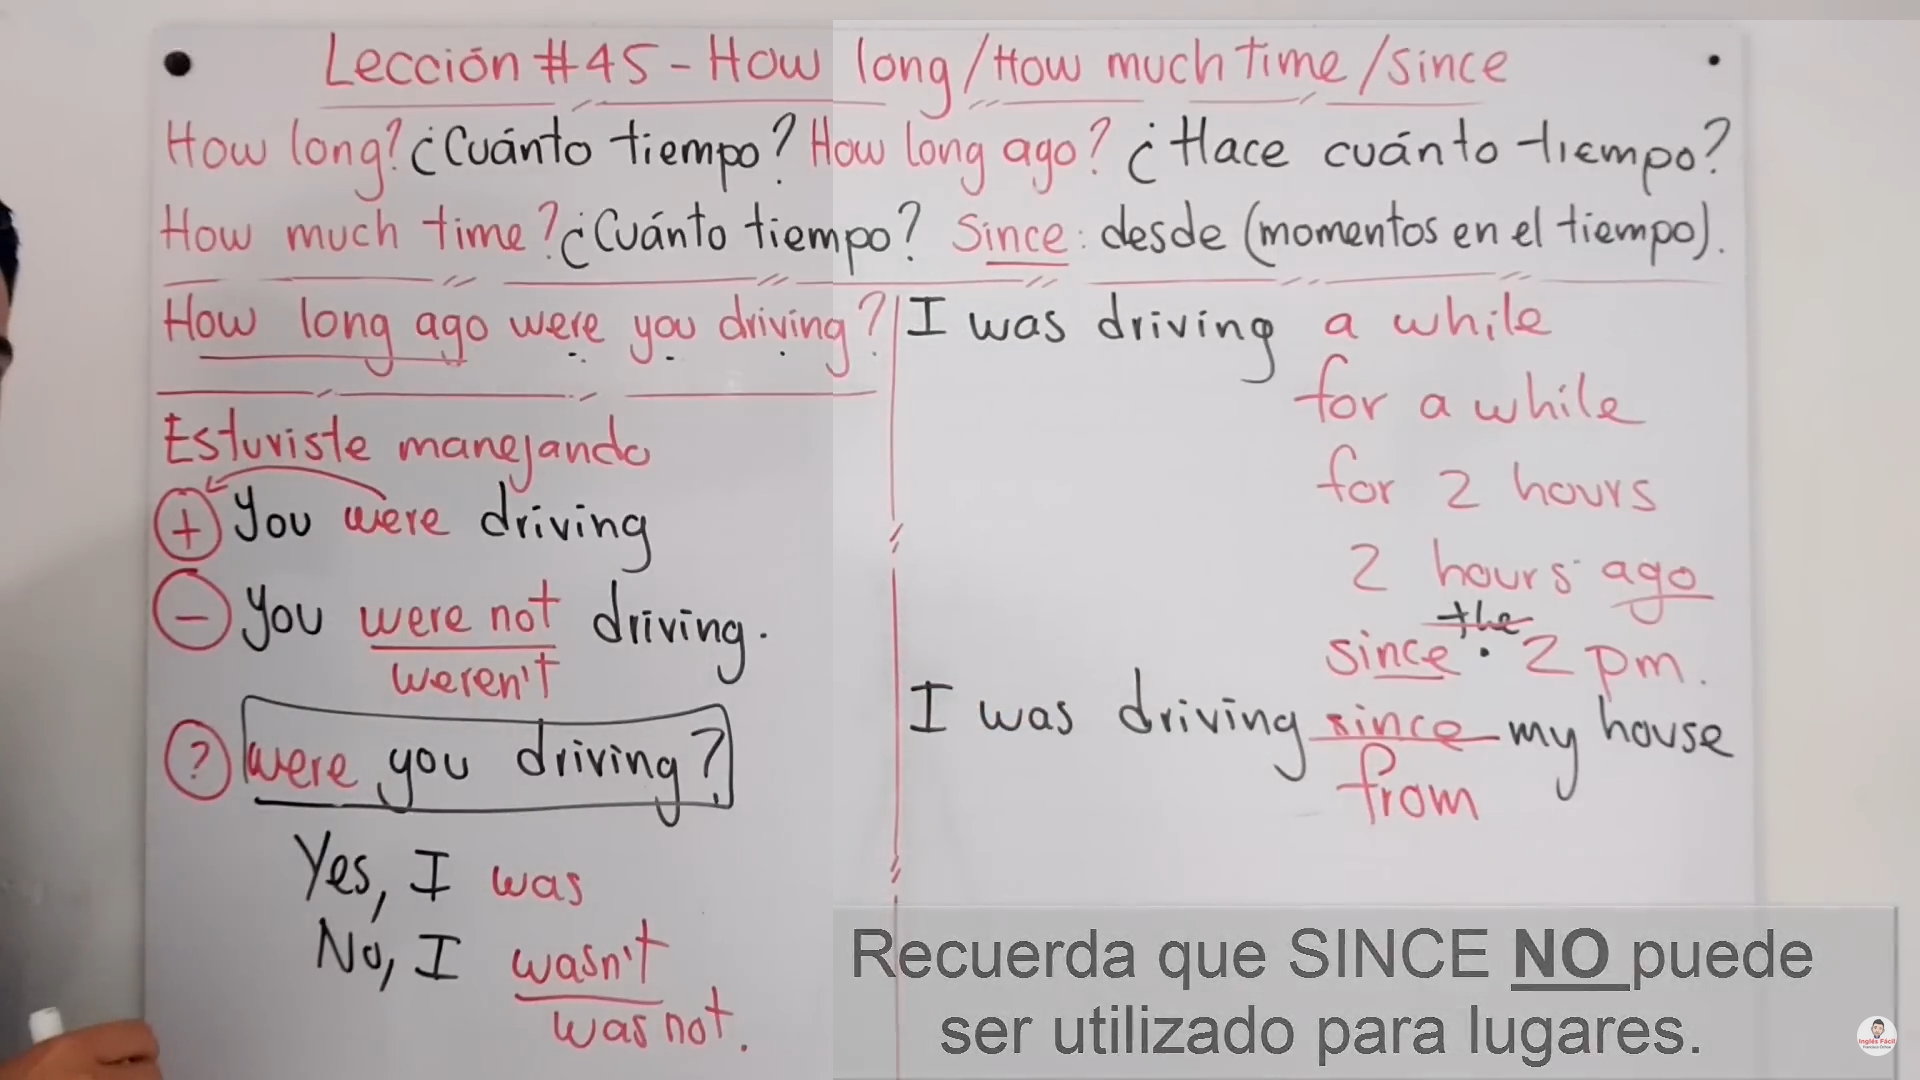 Lección #45 - How long/How much time/since
How long? ¿Cuánto tiempo? How long ago? ¿Hace cuánto tiempo?
How much time? ¿Cuánto tiempo? Since: desde (momentos en el tiempo).
How long ago were you driving?
Estuviste manejando
+ You were driving
- You were not driving.
weren't
? were you driving?
Yes, I was
No, I wasn't
was not.
I was driving a while
for a while
for 2 hours
2 hours ago
the
since 2 pm.
I was driving since my house
from
Recuerda que SINCE NO puede
ser utilizado para lugares.
Inglés Fácil